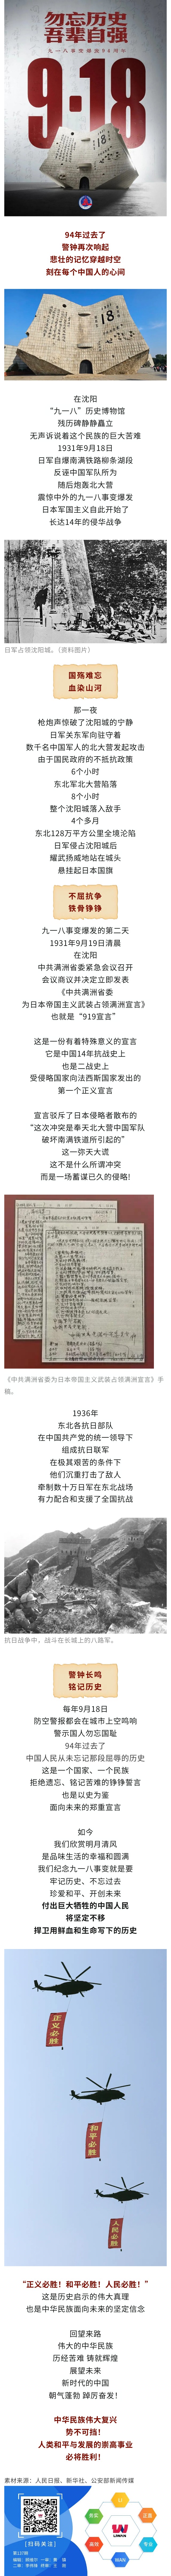 勿忘历史
吾辈自强
九一八事变爆发94周年
9·18
94年过去了
警钟再次响起
悲壮的记忆穿越时空
刻在每个中国人的心间
在沈阳
“九一八”历史博物馆
残历碑静静矗立
无声诉说着这个民族的巨大苦难
1931年9月18日
日军自爆南满铁路柳条湖段
反诬中国军队所为
随后炮轰北大营
震惊中外的九一八事变爆发
日本军国主义自此开始了
长达14年的侵华战争
日军占领沈阳城。（资料图片）
国殇难忘
血染山河
那一夜
枪炮声惊破了沈阳城的宁静
日军关东军向驻守着
数千名中国军人的北大营发起攻击
由于国民政府的不抵抗政策
6个小时
东北军北大营陷落
8个小时
整个沈阳城落入敌手
4个多月
东北128万平方公里全境沦陷
日军侵占沈阳城后
耀武扬威地站在城头
悬挂起日本国旗
不屈抗争
铁骨铮铮
九一八事变爆发的第二天
1931年9月19日清晨
在沈阳
中共满洲省委紧急会议召开
会议商议并决定立即发表
《中共满洲省委
为日本帝国主义武装占领满洲宣言》
也就是“919宣言”
这是一份有着特殊意义的宣言
它是中国14年抗战史上
也是二战史上
受侵略国家向法西斯国家发出的
第一个正义宣言
宣言驳斥了日本侵略者散布的
“这次冲突是奉天北大营中国军队
破坏南满铁道所引起的”
这一弥天大谎
这不是什么所谓冲突
而是一场蓄谋已久的侵略!
《中共满洲省委为日本帝国主义武装占领满洲宣言》手
稿。
1936年
东北各抗日部队
在中国共产党的统一领导下
组成抗日联军
在极其艰苦的条件下
他们沉重打击了敌人
牵制数十万日军在东北战场
有力配合和支援了全国抗战
抗日战争中，战斗在长城上的八路军。
警钟长鸣
铭记历史
每年9月18日
防空警报都会在城市上空鸣响
警示国人勿忘国耻
94年过去了
中国人民从未忘记那段屈辱的历史
这是一个国家、一个民族
拒绝遗忘、铭记苦难的铮铮誓言
也是以史为鉴
面向未来的郑重宣言
如今
我们欣赏明月清风
是品味生活的幸福和圆满
我们纪念九一八事变就是要
牢记历史、不忘过去
珍爱和平、开创未来
付出巨大牺牲的中国人民
将坚定不移
捍卫用鲜血和生命写下的历史
正义必胜
和平必胜
人民必胜
“正义必胜！和平必胜！人民必胜！”
这是历史启示的伟大真理
也是中华民族面向未来的坚定信念
回望来路
伟大的中华民族
历经苦难 铸就辉煌
展望未来
新时代的中国
朝气蓬勃 踔厉奋发！
中华民族伟大复兴
势不可挡！
人类和平与发展的崇高事业
必将胜利！
素材来源：人民日报、新华社、公安部新闻传媒
[扫码关注]